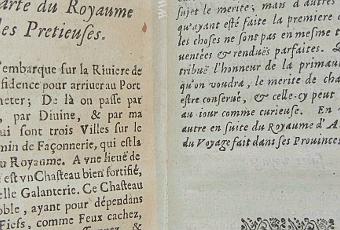 arte du Royaume
les Pretieuses.
'embarque sur la Riuiere de
fidence pour arriuer au Port
heter; De là on passe par
, par Diuine, & par ma
ui sont trois Villes sur le
min de Façonnerie, qui est la
du Royaume. A vne lieuë de
est vn Chasteau bien fortifié,
elle Galanterie. Ce Chasteau
oble, ayant pour dépendans
Fiefs, comme Feux cachez,
sujet le merite; mais d'autres
qu'ayant esté faite la premiere
les choses ne sont pas en mesme t
uentées & renduës parfaites.
tribuë l'honneur de la primau
qu'on voudra, le merite de cha
estre conserué, & celle-cy peut
au iour comme curieuse. En
autre en suite du Royaume d'A
du Voyage fait dans ses Prouince